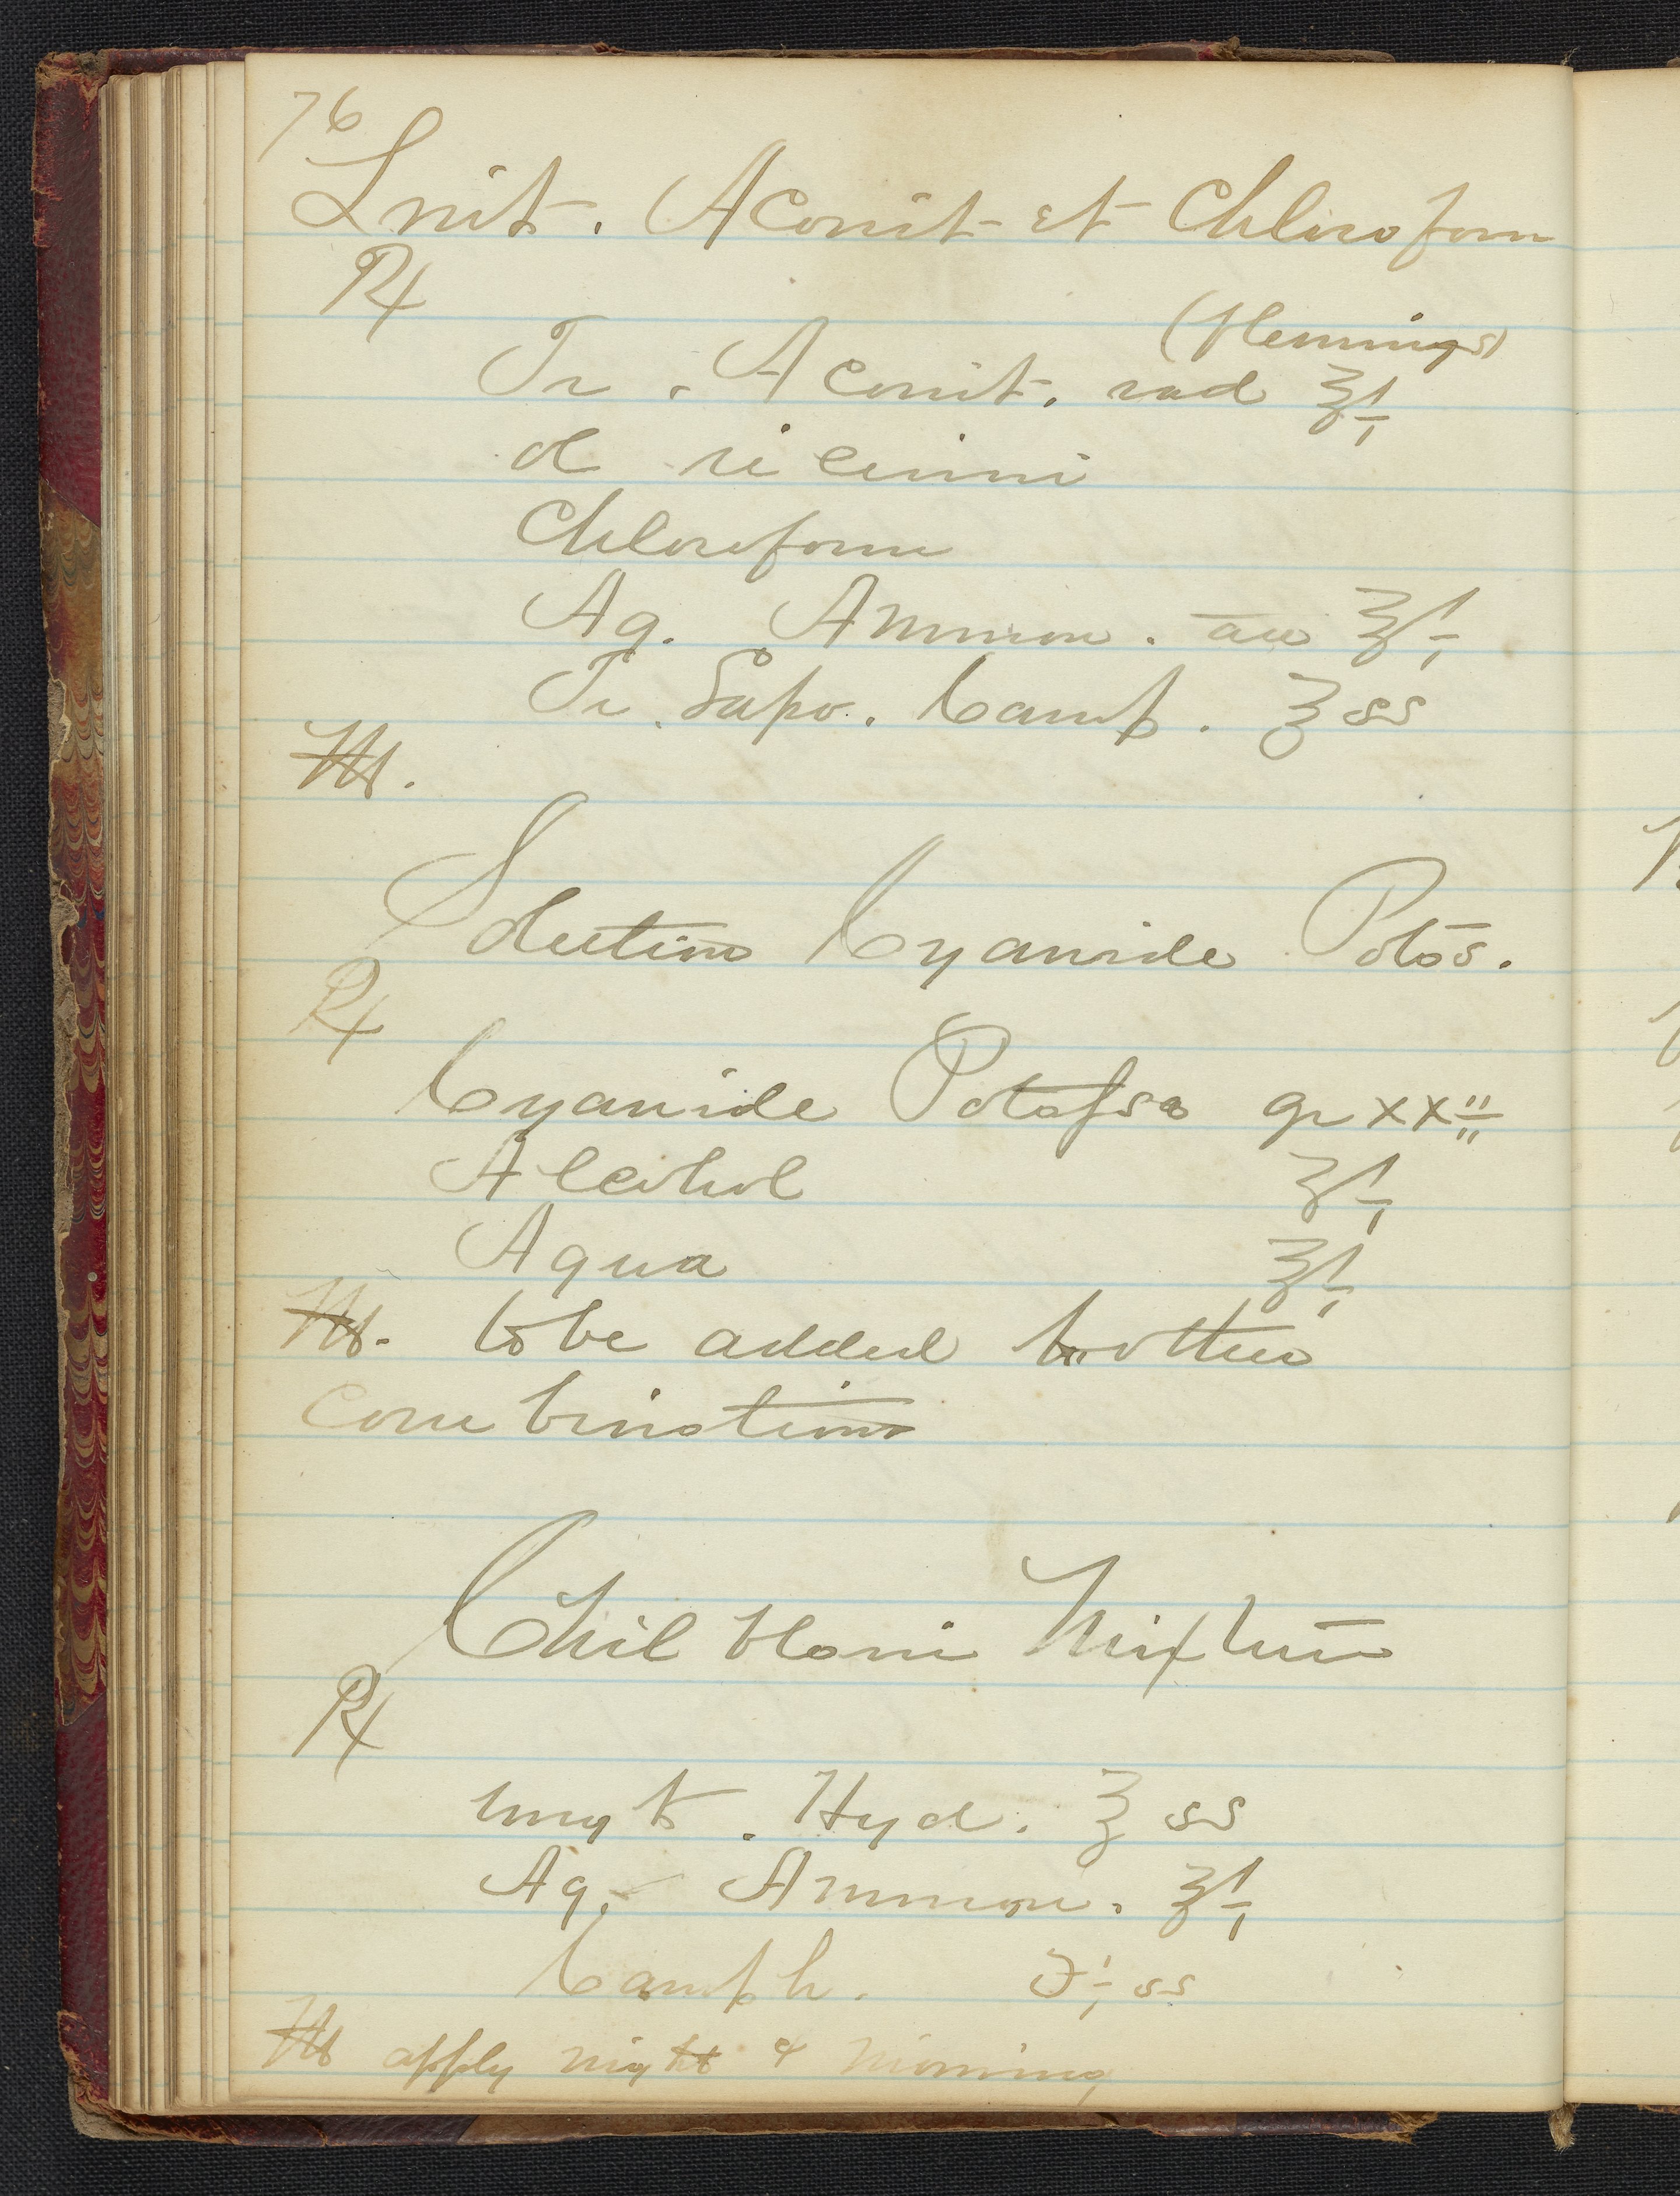 76
Lnit. Aconit et Chloroform
℞
(Flemings)
Tr. Aconit. rad ℥i
ol ricinni
Chloroform
Aq. Ammon. aa ℥i
Tr. Sapo. Camp. ℥ss
M.
Solution Cyanide Potas.
℞
Cyanide Potassa gr xxii
Alcohol ℥i
Aqua ℥i
M. to be added to other
combination
Chil blain Mixture
℞
ungt. Hyd. ℥ ss
Aq. Ammon. ℥i
Camph. ʒi ss
M apply night & morning